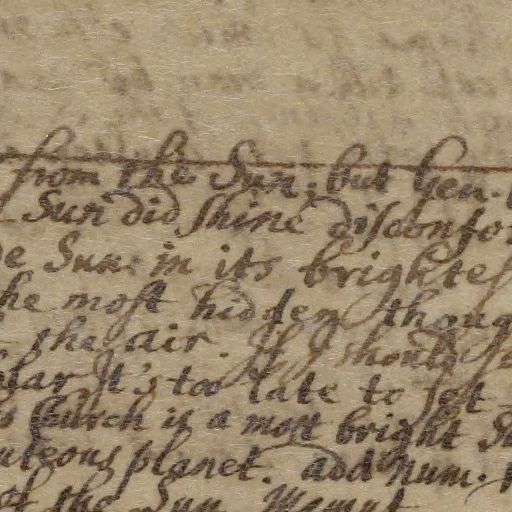 from the Sun; but Gen.
Sun did shine disconfo
Sun: in its brightes
he most hidden thoug
the air. If I should
It's too late to set
Church is a most bright
uteous planet. add num.
of the Sun.